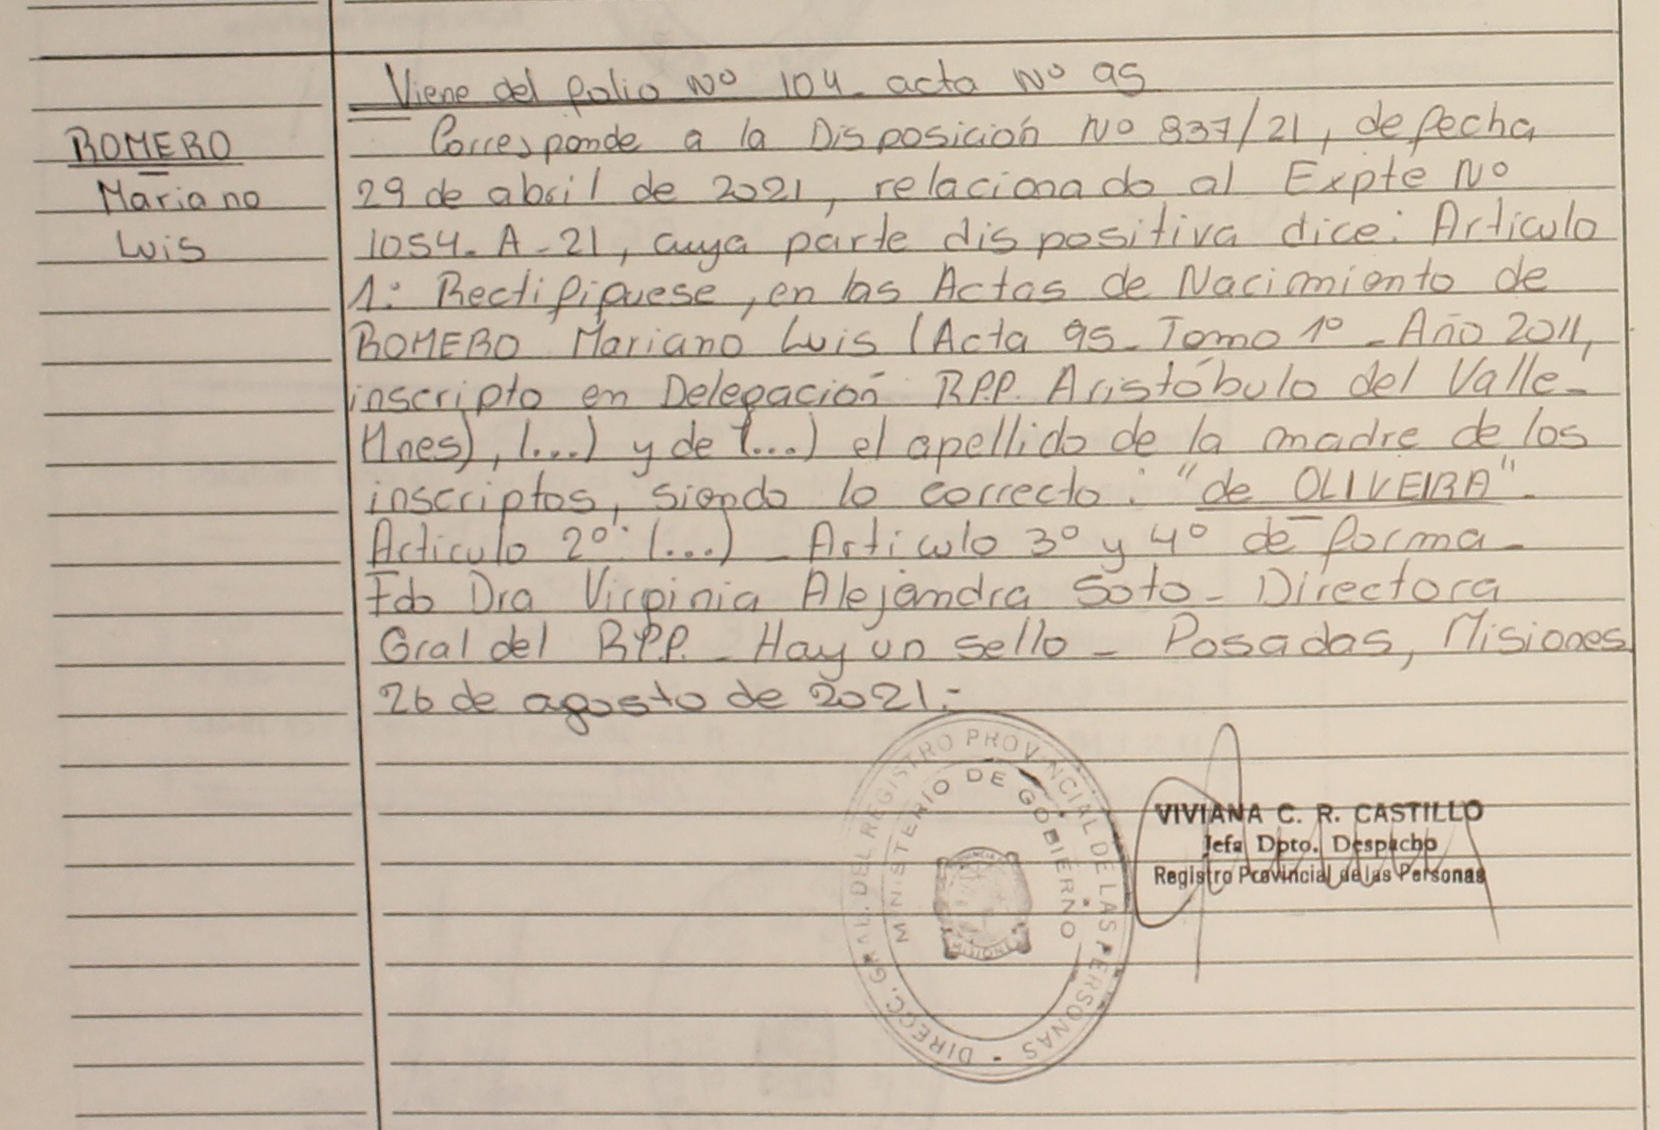 Viene del folio Nº 104 - acta Nº 95
ROMERO
Mariano
Luis
Corresponde a la Disposición Nº 837/21, de fecha
29 de abril de 2021, relacionado al Expte Nº
1054. A-21, cuya parte dispositiva dice: Articulo
1: Rectifiquese, en las Actas de Nacimiento de
ROMERO Mariano Luis (Acta 95 - Tomo 1º - Año 2011,
inscripto en Delegación R.P.P. Aristóbulo del Valle -
Mnes), (...) y de (...) el apellido de la madre de los
inscriptos, siendo lo correcto: "de OLIVEIRA".
Articulo 2º: (...) - Articulo 3º y 4º de forma -
Fdo Dra Virginia Alejandra Soto - Directora
Gral del R.P.P. - Hay un sello - Posadas, Misiones
26 de agosto de 2021.-
DIRECC. GRAL. DEL REGISTRO PROVINCIAL DE LAS PERSONAS
MINISTERIO DE GOBIERNO
MISIONES
VIVIANA C. R. CASTILLO
Jefa Dpto. Despacho
Registro Provincial de las Personas